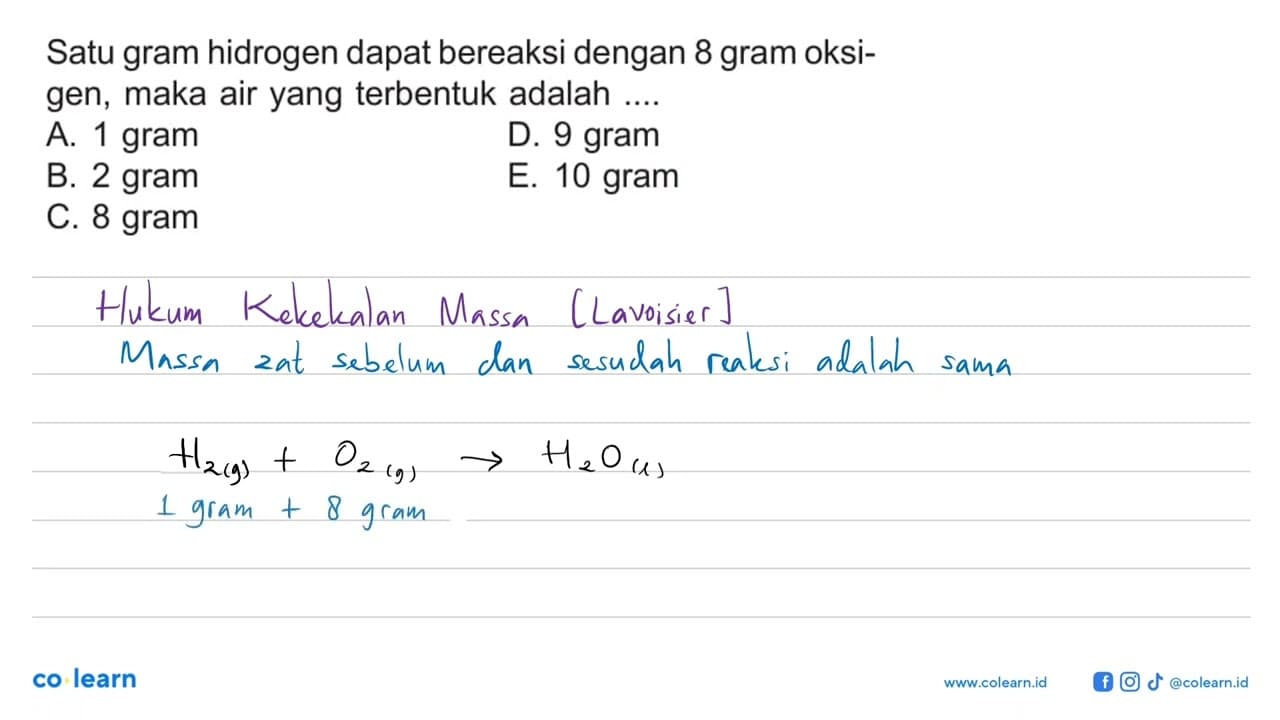 Satu gram hidrogen dapat bereaksi dengan 8 gram oksi-
gen, maka air yang terbentuk adalah ....
A. 1 gram
B. 2 gram
C. 8 gram
D. 9 gram
E. 10 gram
Hukum Kekekalan Massa [Lavoisier]
Massa zat sebelum dan sesudah reaksi adalah sama
H₂(g) + O₂(g) → H₂O(l)
1 gram + 8 gram
co learn
www.colearn.id
@colearn.id